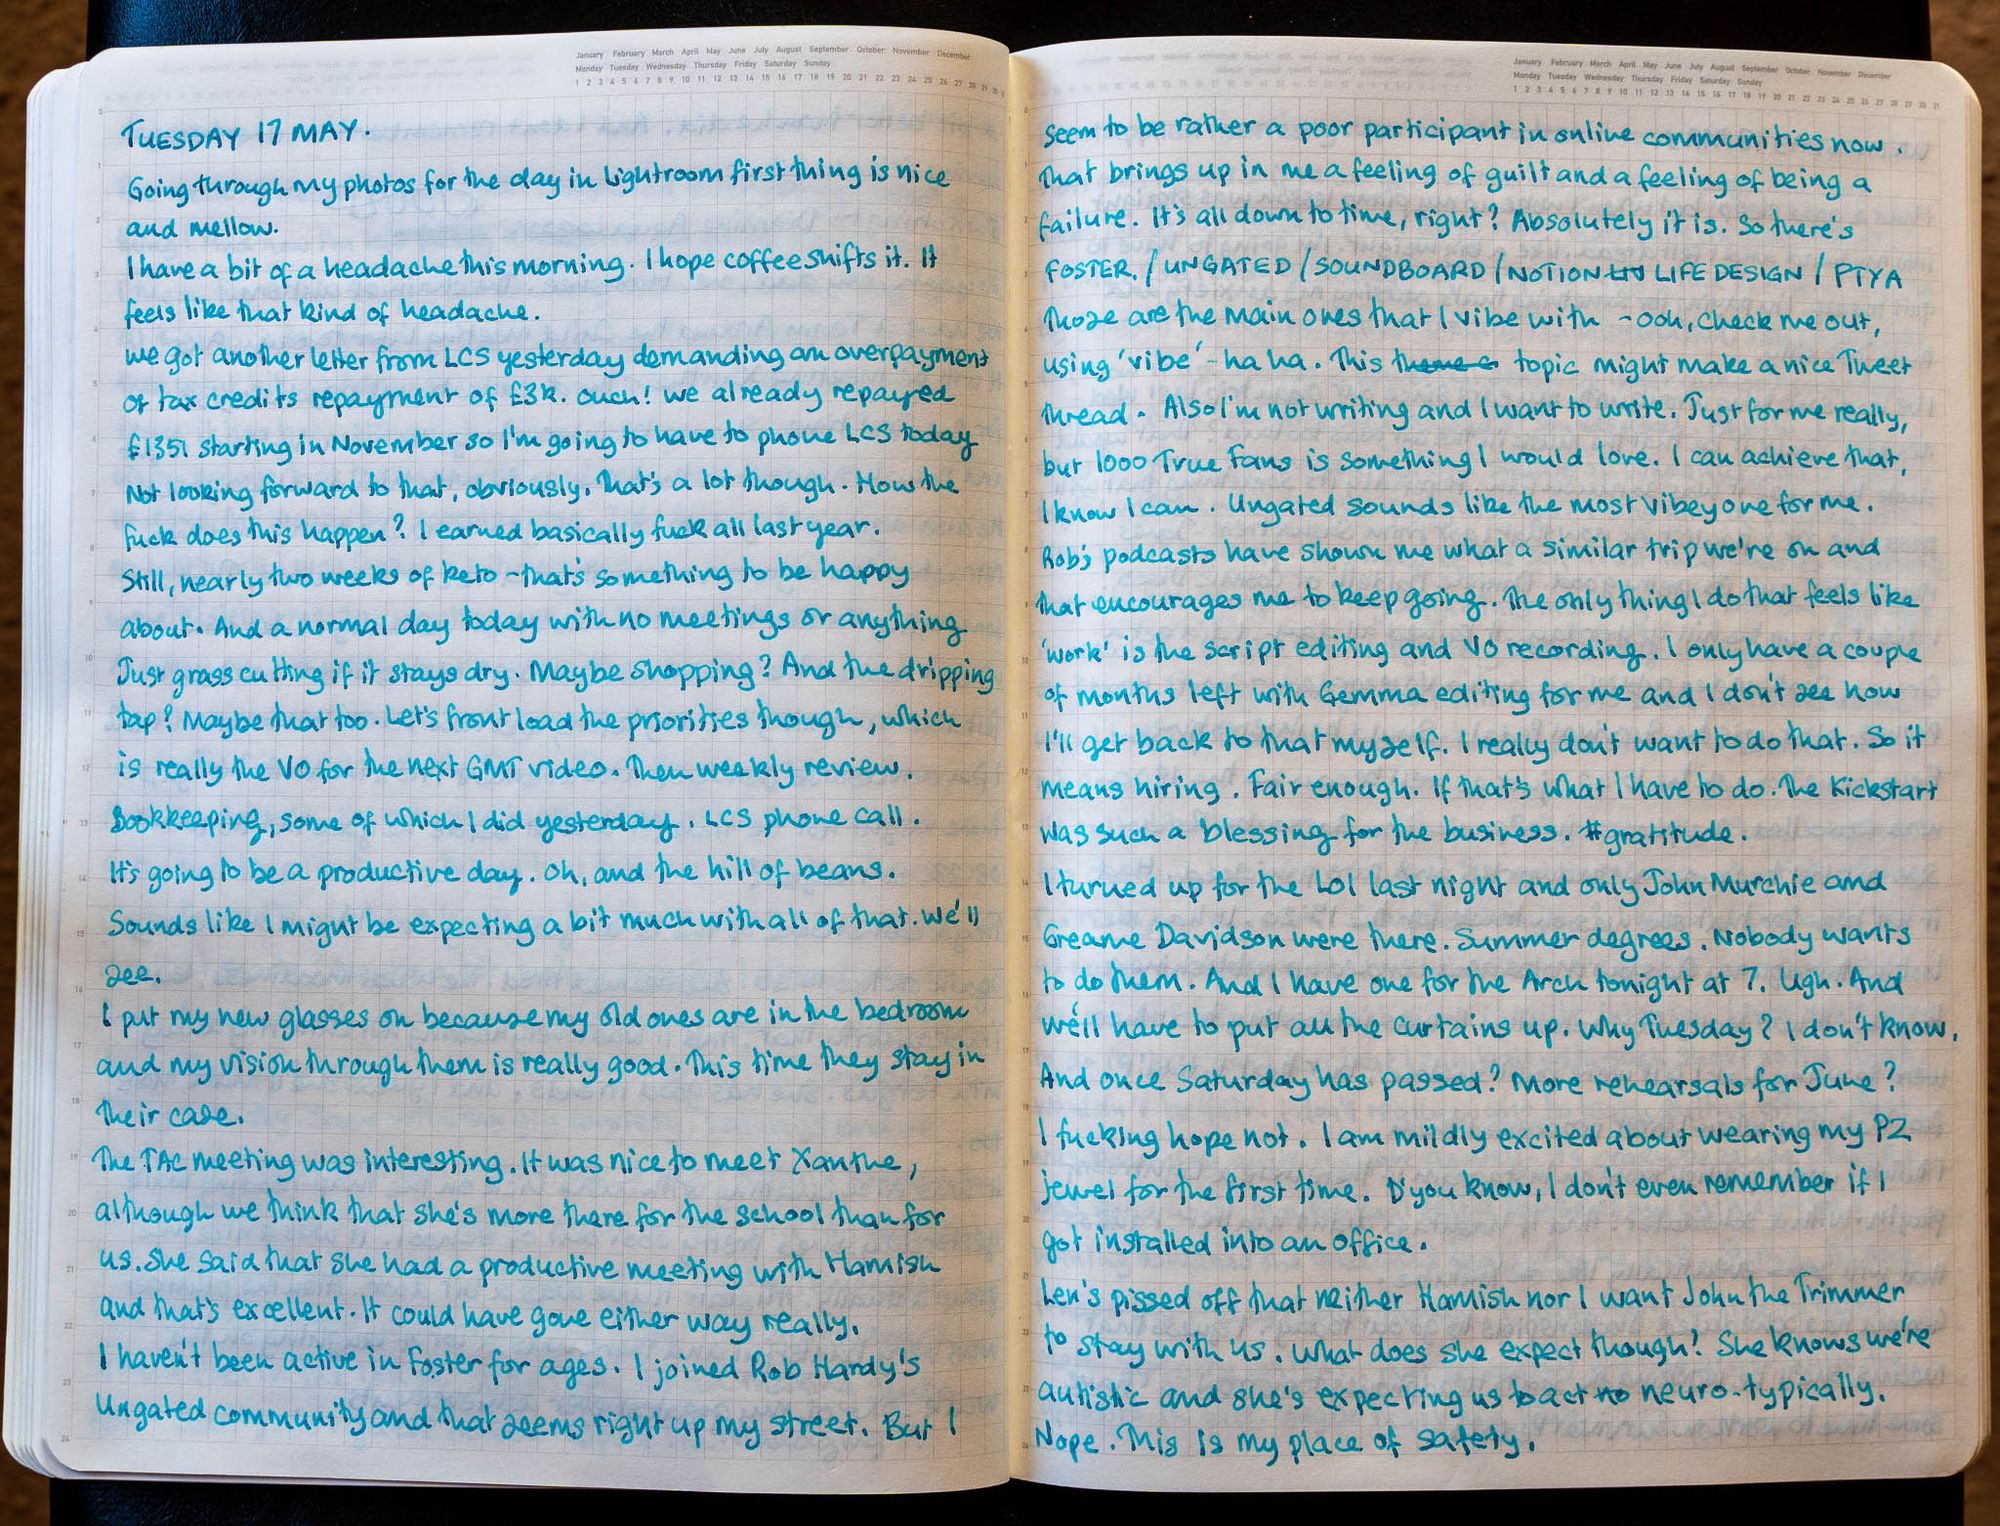 January February March April May June July August September October November December
Monday Tuesday Wednesday Thursday Friday Saturday Sunday
1 2 3 4 5 6 7 8 9 10 11 12 13 14 15 16 17 18 19 20 21 22 23 24 25 26 27 28 29 30 31
TUESDAY 17 MAY.
Going through my photos for the day in Lightroom first thing is nice
and mellow.
I have a bit of a headache this morning. I hope coffee shifts it. It
feels like that kind of headache.
We got another letter from LCS yesterday demanding an overpayment
of tax credits repayment of £3k. Ouch! We already repayed
£1351 starting in November so I'm going to have to phone LCS today
Not looking forward to that, obviously. That's a lot though. How the
fuck does this happen? I earned basically fuck all last year.
Still, nearly two weeks of keto - that's something to be happy
about. And a normal day today with no meetings or anything
Just grass cutting if it stays dry. Maybe shopping? And the dripping
tap? Maybe that too. Let's front load the priorities though, which
is really the VO for the next GMT video. Then weekly review.
Bookkeeping, some of which I did yesterday. LCS phone call.
It's going to be a productive day. Oh, and the hill of beans.
Sounds like I might be expecting a bit much with all of that. We'll
see.
I put my new glasses on because my old ones are in the bedroom
and my vision through them is really good. This time they stay in
their case.
The TAC meeting was interesting. It was nice to meet Xanthe,
although we think that she's more there for the school than for
us. She said that she had a productive meeting with Hamish
and that's excellent. It could have gone either way really.
I haven't been active in Foster for ages. I joined Rob Hardy's
Ungated community and that seems right up my street. But I
January February March April May June July August September October November December
Monday Tuesday Wednesday Thursday Friday Saturday Sunday
1 2 3 4 5 6 7 8 9 10 11 12 13 14 15 16 17 18 19 20 21 22 23 24 25 26 27 28 29 30 31
seem to be rather a poor participant in online communities now.
That brings up in me a feeling of guilt and a feeling of being a
failure. It's all down to time, right? Absolutely it is. So there's
FOSTER. / UNGATED / SOUNDBOARD / NOTION LIFE DESIGN / PTYA
Those are the main ones that I vibe with - ooh, check me out,
using 'vibe' - ha ha. This topic might make a nice Tweet
thread. Also I'm not writing and I want to write. Just for me really,
but 1000 True Fans is something I would love. I can achieve that,
I know I can. Ungated sounds like the most vibey one for me.
Rob's podcasts have shown me what a similar trip we're on and
that encourages me to keep going. The only thing I do that feels like
'work' is the script editing and VO recording. I only have a couple
of months left with Gemma editing for me and I don't see how
I'll get back to that myself. I really don't want to do that. So it
means hiring. Fair enough. If that's what I have to do. The Kickstart
was such a blessing for the business. #gratitude.
I turned up for the LOI last night and only John Murchie and
Greame Davidson were there. Summer degrees. Nobody wants
to do them. And I have one for the Arch tonight at 7. Ugh. And
we'll have to put all the curtains up. Why Tuesday? I don't know.
And once Saturday has passed? More rehearsals for June?
I fucking hope not. I am mildly excited about wearing my PZ
jewel for the first time. D'you know, I don't even remember if I
got installed into an office.
Len's pissed off that neither Hamish nor I want John the Trimmer
to stay with us. What does she expect though? She knows we're
autistic and she's expecting us to act no neuro-typically.
Nope. This is my place of safety.